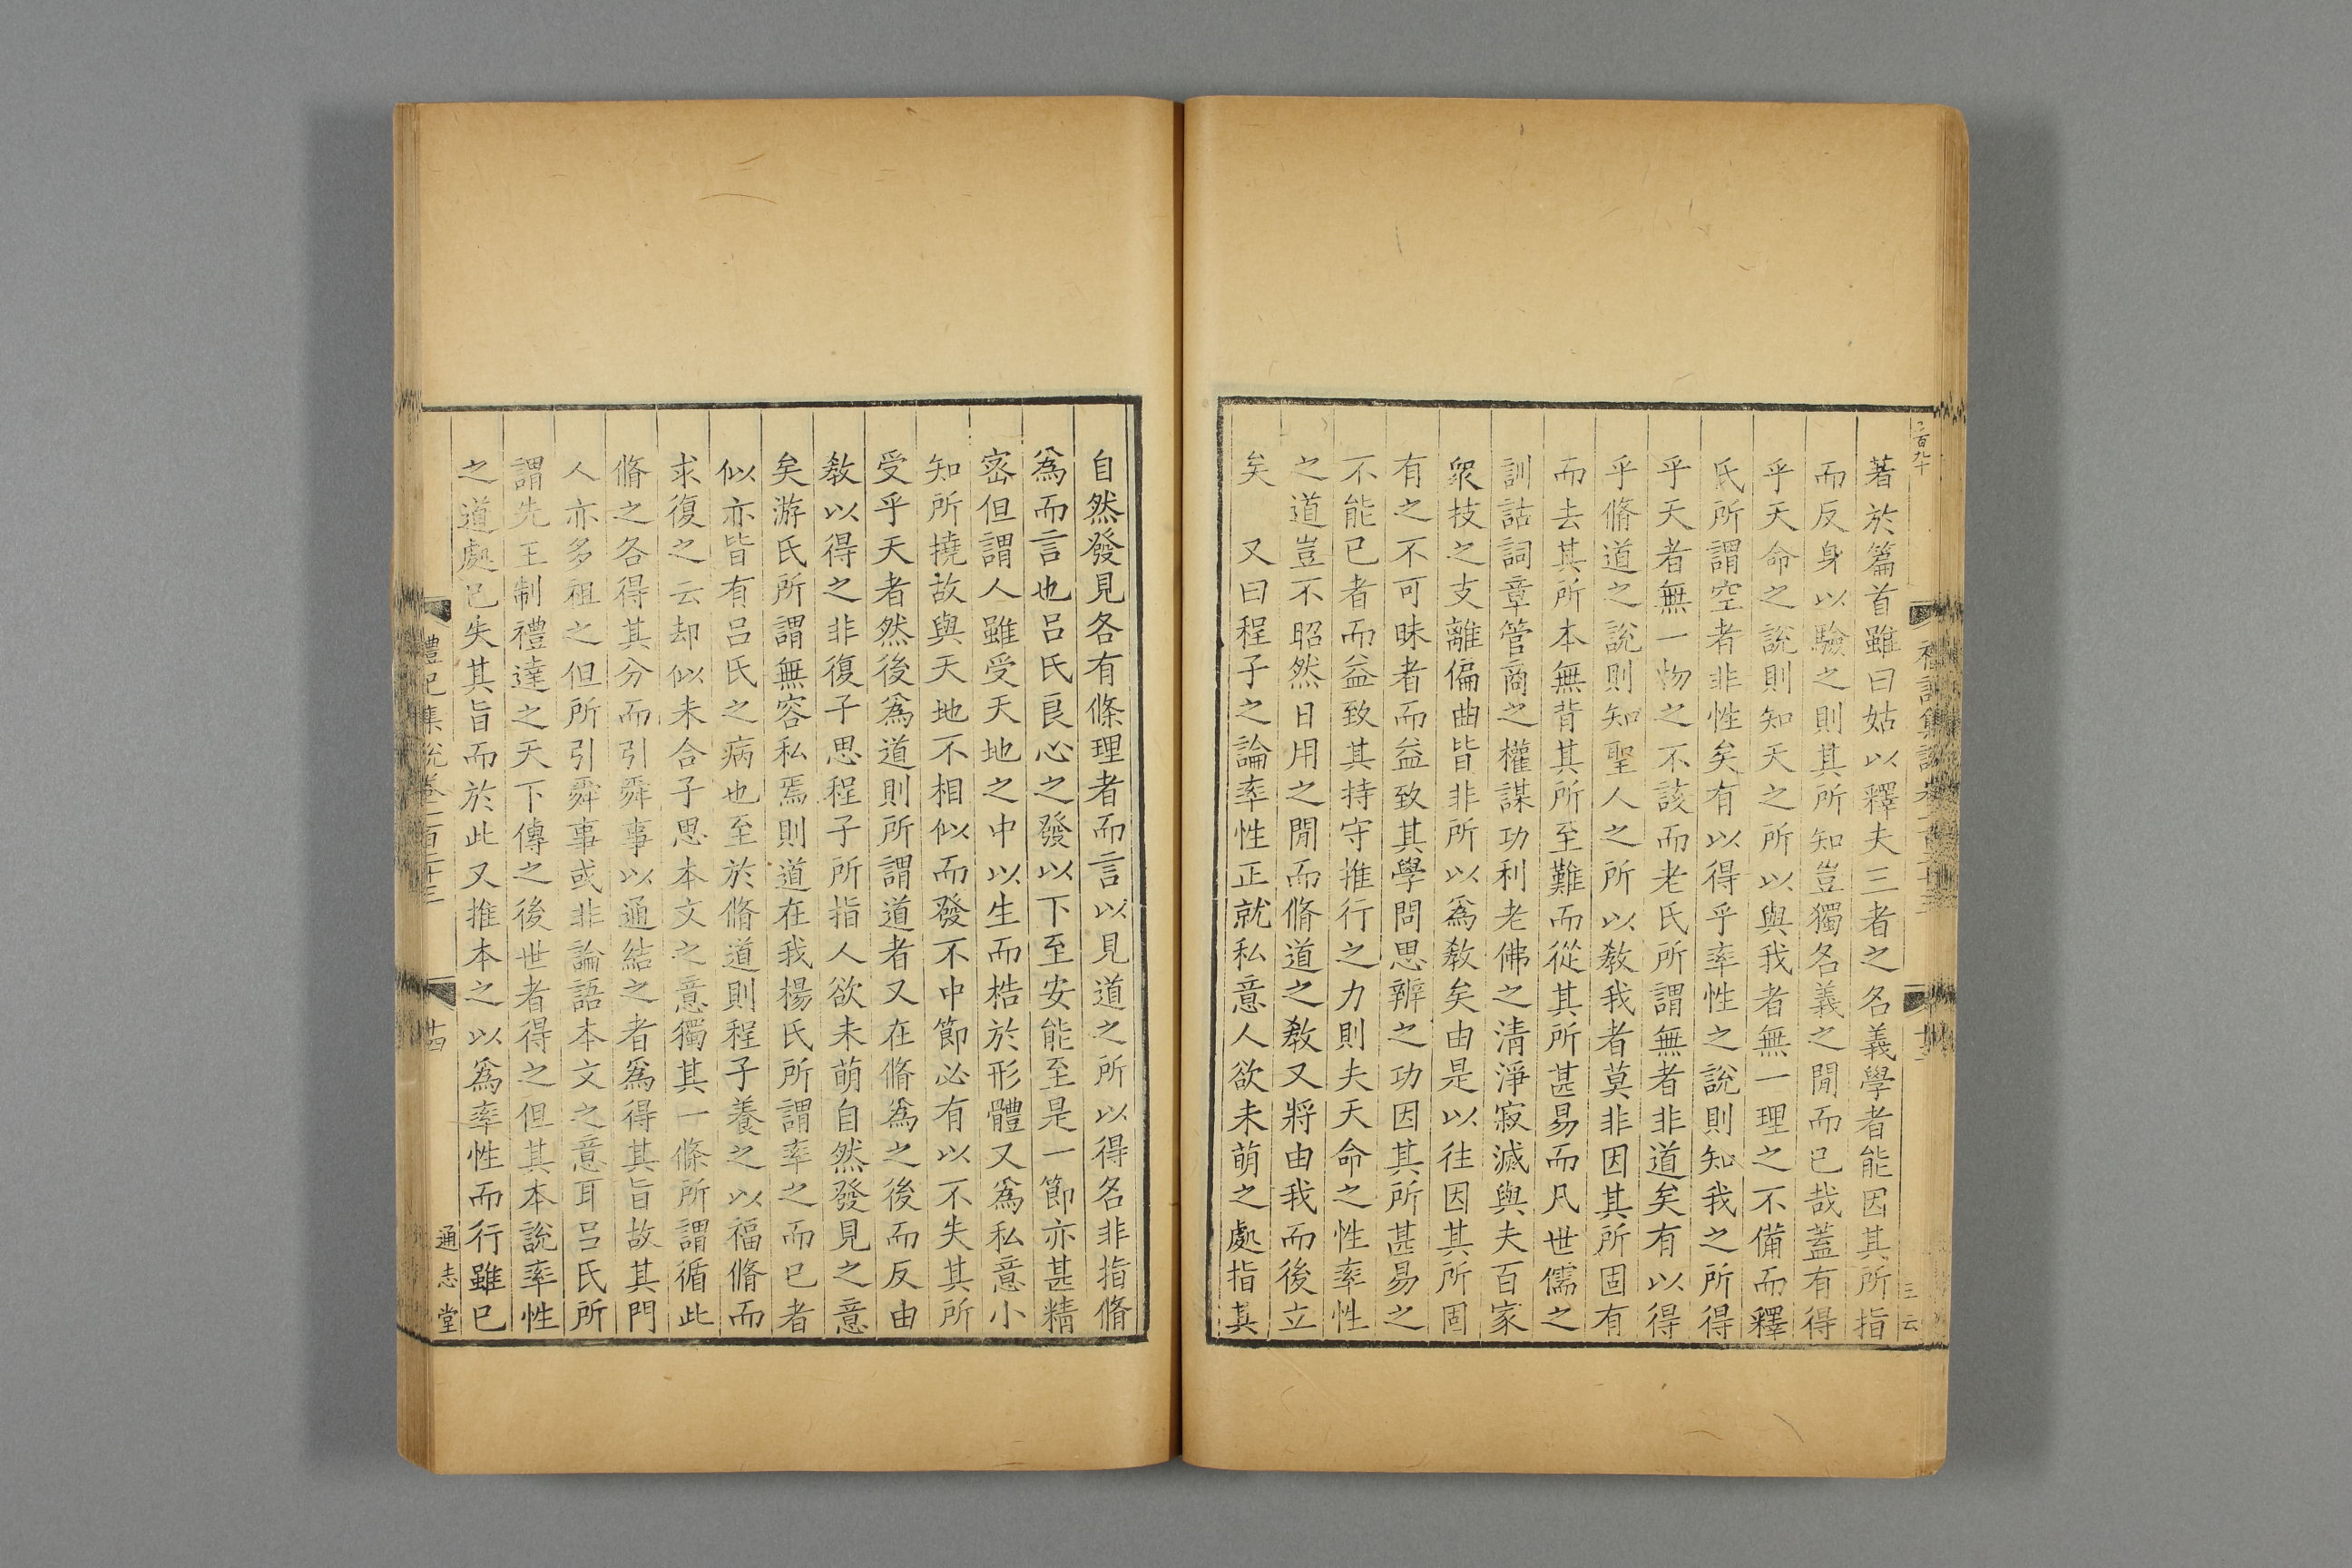 著於篇首雖曰姑以釋夫三者之名義學者能因其所指
而反身以驗之則其所知豈獨名義之閒而已哉蓋有得
乎天命之說則知天之所以與我者無一理之不備而釋
氏所謂空者非性矣有以得乎率性之說則知我之所得
乎天者無一物之不該而老氏所謂無者非道矣有以得
乎脩道之說則知聖人之所以敎我者莫非因其所固有
而去其所本無背其所至難而從其所甚易而凡世儒之
訓詁詞章管商之權謀功利老佛之清淨寂滅與夫百家
衆技之支離偏曲皆非所以爲敎矣由是以往因其所固
有之不可昧者而益致其學問思辨之功因其所甚易之
不能已者而益致其持守推行之力則夫天命之性率性
之道豈不昭然日用之閒而脩道之敎又將由我而後立
矣　又曰程子之論率性正就私意人欲未萌之處指其
自然發見各有條理者而言以見道之所以得名非指脩
爲而言也呂氏良心之發以下至安能至是一節亦甚精
宻但謂人雖受天地之中以生而梏於形體又爲私意小
知所撓故與天地不相似而發不中節必有以不失其所
受乎天者然後爲道則所謂道者又在脩爲之後而反由
敎以得之非復子思程子所指人欲未萌自然發見之意
矣游氏所謂無容私焉則道在我楊氏所謂率之而已者
似亦皆有呂氏之病也至於脩道則程子養之以福脩而
求復之云却似未合子思本文之意獨其一條所謂循此
脩之各得其分而引舜事以通結之者爲得其旨故其門
人亦多祖之但所引舜事或非論語本文之意耳呂氏所
謂先王制禮達之天下傳之後世者得之但其本說率性
之道處已失其旨而於此又推本之以爲率性而行雖已
禮記集說卷一百二十三
通志堂